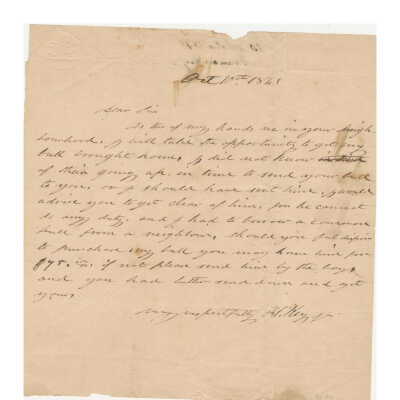 Oct 1st 1848
Dear Sir
As two of my hands are in your neigh
bourhood. I will take the opportunity to get my
bull brought home, I did not know
of their going up in time to send your bull
to you, or I should have sent him, I would
advise you to get clear of him, for he cannot
do any duty, and I had to borrow a common
bull from a neighbour, should you feel
to purchase my bull you may have him for
if not please send him by the boys
and you had better send down and get
yours
very respectfully